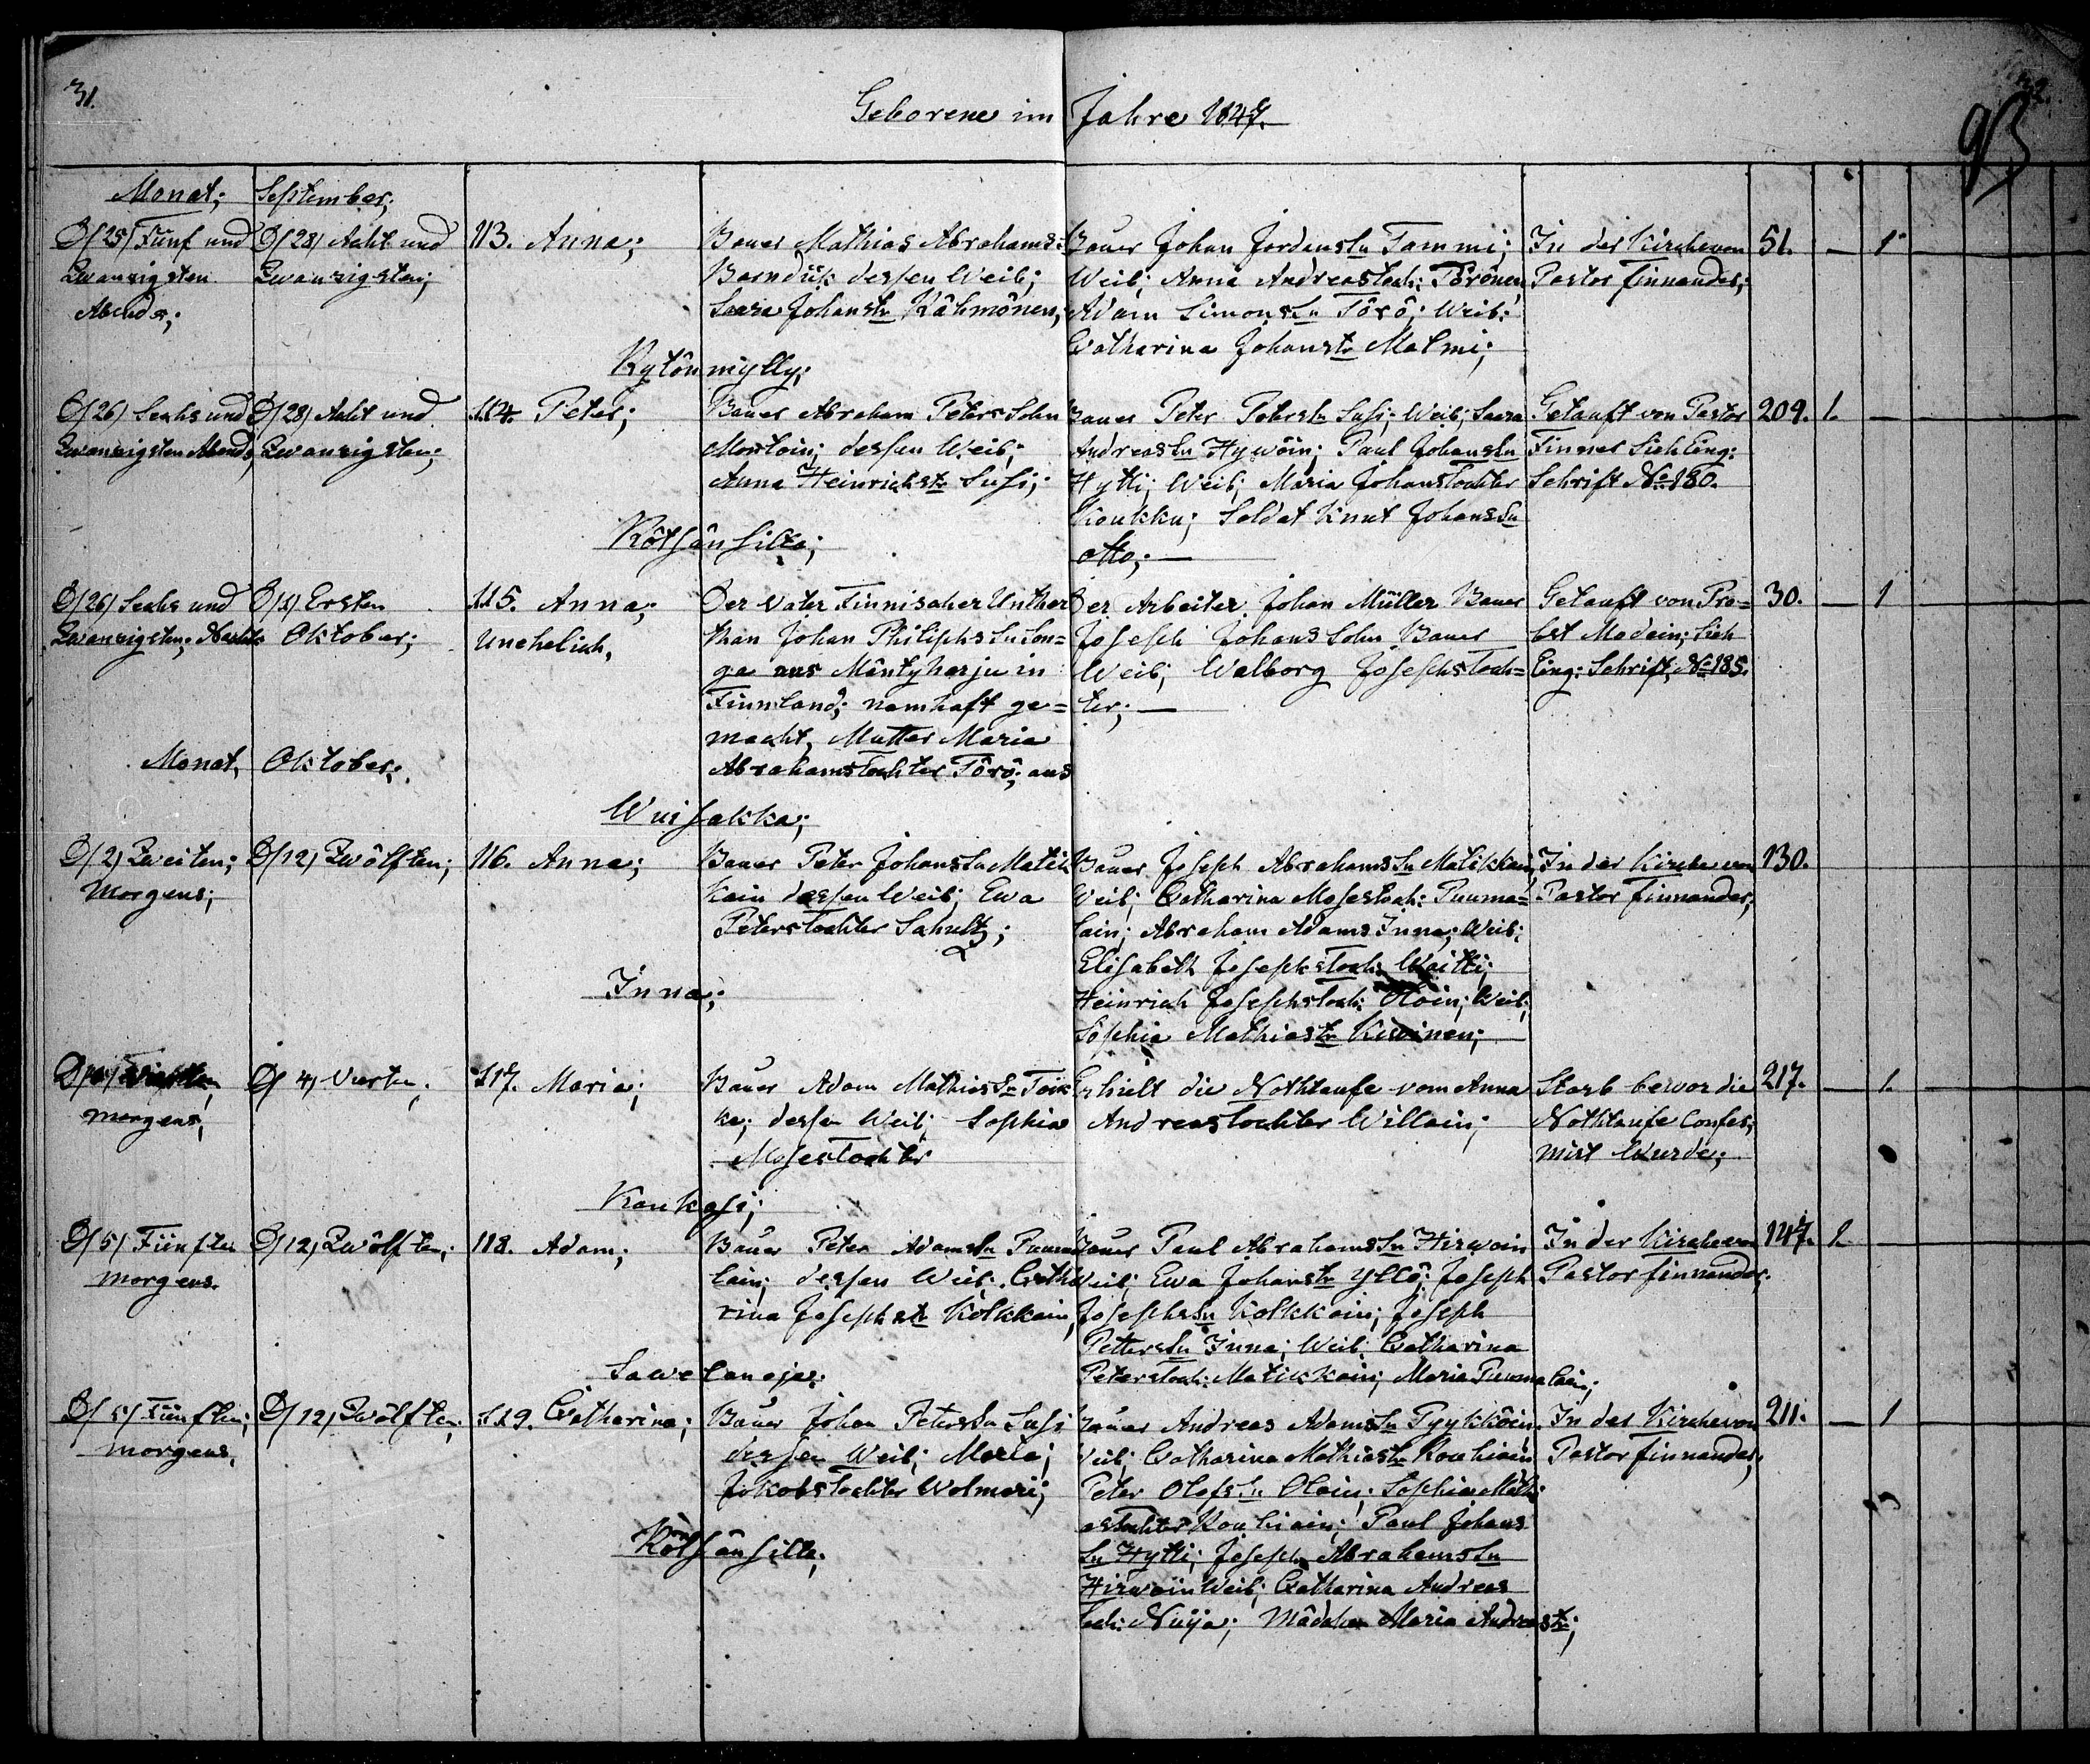 31.
Geborene im Jahre 1847.
93
Monat; September;
D/25/ Fünf und
Zwanzigsten
Abends;
D/28/ Acht und
Zwanzigsten;
113. Anna;
Bauer Mathias Abrahams:
dessen Weib;
Saara Johanstr Kâhmönen;
Bauer Johan JordansSn Tammi;
Weib; Anna Andreastoch: Törönen,
Adam SimonsSn Törö; Weib:
Catharina Johanstr Malmi;
In der Kirche von
Pastor Finnander;
51. — 1
Rytönmylly;
D/26/ Sechs und
Zwanzigsten Abends,
D/28/ Acht und
Zwanzigsten;
114. Peter;
Bauer Abraham Peters Sohn
dessen Weib;
Anna Heinrichstr Susi;
Bauer Peter PetersSn Susi; Weib; Saara
AndreasSn Hywöin; Paul JohansSn
Hytti; Weib; Maria Johanstochter
Koukku; Soldat Knut JohansSn
Otto; —
Getauft von Pastor
Sieh Eing:
Schrift No 180.
209. 1. —
Rötsänsilta;
D/26/ Sechs und
Zwanzigsten; Nachts
D/1/ Ersten
Oktober;
115. Anna;
Unehelich,
Der Vater Finnischer Unther
than Johan PhiliphsSn Son=
ga aus Mäntyharju in
Finnland; namhaft ge=
macht, Mutter Maria
Abrahamstochter Törö; aus
Der Arbeiter Johan Müller Bauer
Joseph Johans Sohn Bauer
Weib; Walborg Josephstoch=
ter; —
Getauft von Pro=
bst Madein; Sieh
Eing: Schrift, No 185.
30. — 1
Monat, Oktober;
Wuisakka;
D/2/ Zweiten;
Morgens;
D/12/ Zwölften;
116. Anna;
Bauer Peter JohansSn Matik
kain dessen Weib; Ewa
Peterstochter Schultz;
Bauer Joseph AbrahamsSn Matikkain,
Weib; Catharina Mosestoch: Puuma=
lain; Abraham Adams Inna; Weib;
Elisabeth Josephstoch: Waitti;
Heinrich Josephstoch: Oloin; Weib;
Sophia Mathiastr Kiwinen;
In der Kirche von
Pastor Finnander;
130.
Inna;
Morgens,
D/4/ Vierten;
117. Maria;
Bauer Adam MathiasSn Toik
ka; dessen Weib; Sophia
Mosestochter
Erhielt die Nothtaufe vom Anna
Andreastochter Willain;
Starb bevor die
Nothtaufe Confir
mirt Wurde;
217. — 1.
Kaukasi;
D/5/ Fünften
Morgens.
D/12/ Zwölften;
118. Adam;
Bauer Peter AdamsSn Puuma
lain; dessen Weib; Catha
rina Josephstr Kolkkain,
Bauer Paul AbrahamsSn Hirwoin
Weib; Ewa Johanstr Yllö; Joseph
JosephsSn Kolkkain; Joseph
PettersSn Inna; Weib; Catharina
Peterstoch: Matikkain; Maria Puumalain;
In der Kirche von
Pastor Finnander.
147. 1. —
Sawelanoja;
D/5/ Fünften;
Morgens,
D/12/ Zwölften;
119. Catharina;
Bauer Johan PetersSn Susi
dessen Weib; Maria;
Jakobstochter Wolmari;
Bauer Andreas AdamsSn Pyykköin
Weib; Catharina Mathiastr Rouhiain
Peter OlofsSn Oloin; Sophia Mathi
astochter Rouhiain; Paul Johans
Sn Hytti; Joseph AbrahamsSn
Hirwöin Weib; Catharina Andreas
toch: Nuija; Mädchen Maria Andreastr;
In der Kirche von
Pastor Finnander;
211. — 1
Rötsänsilta;